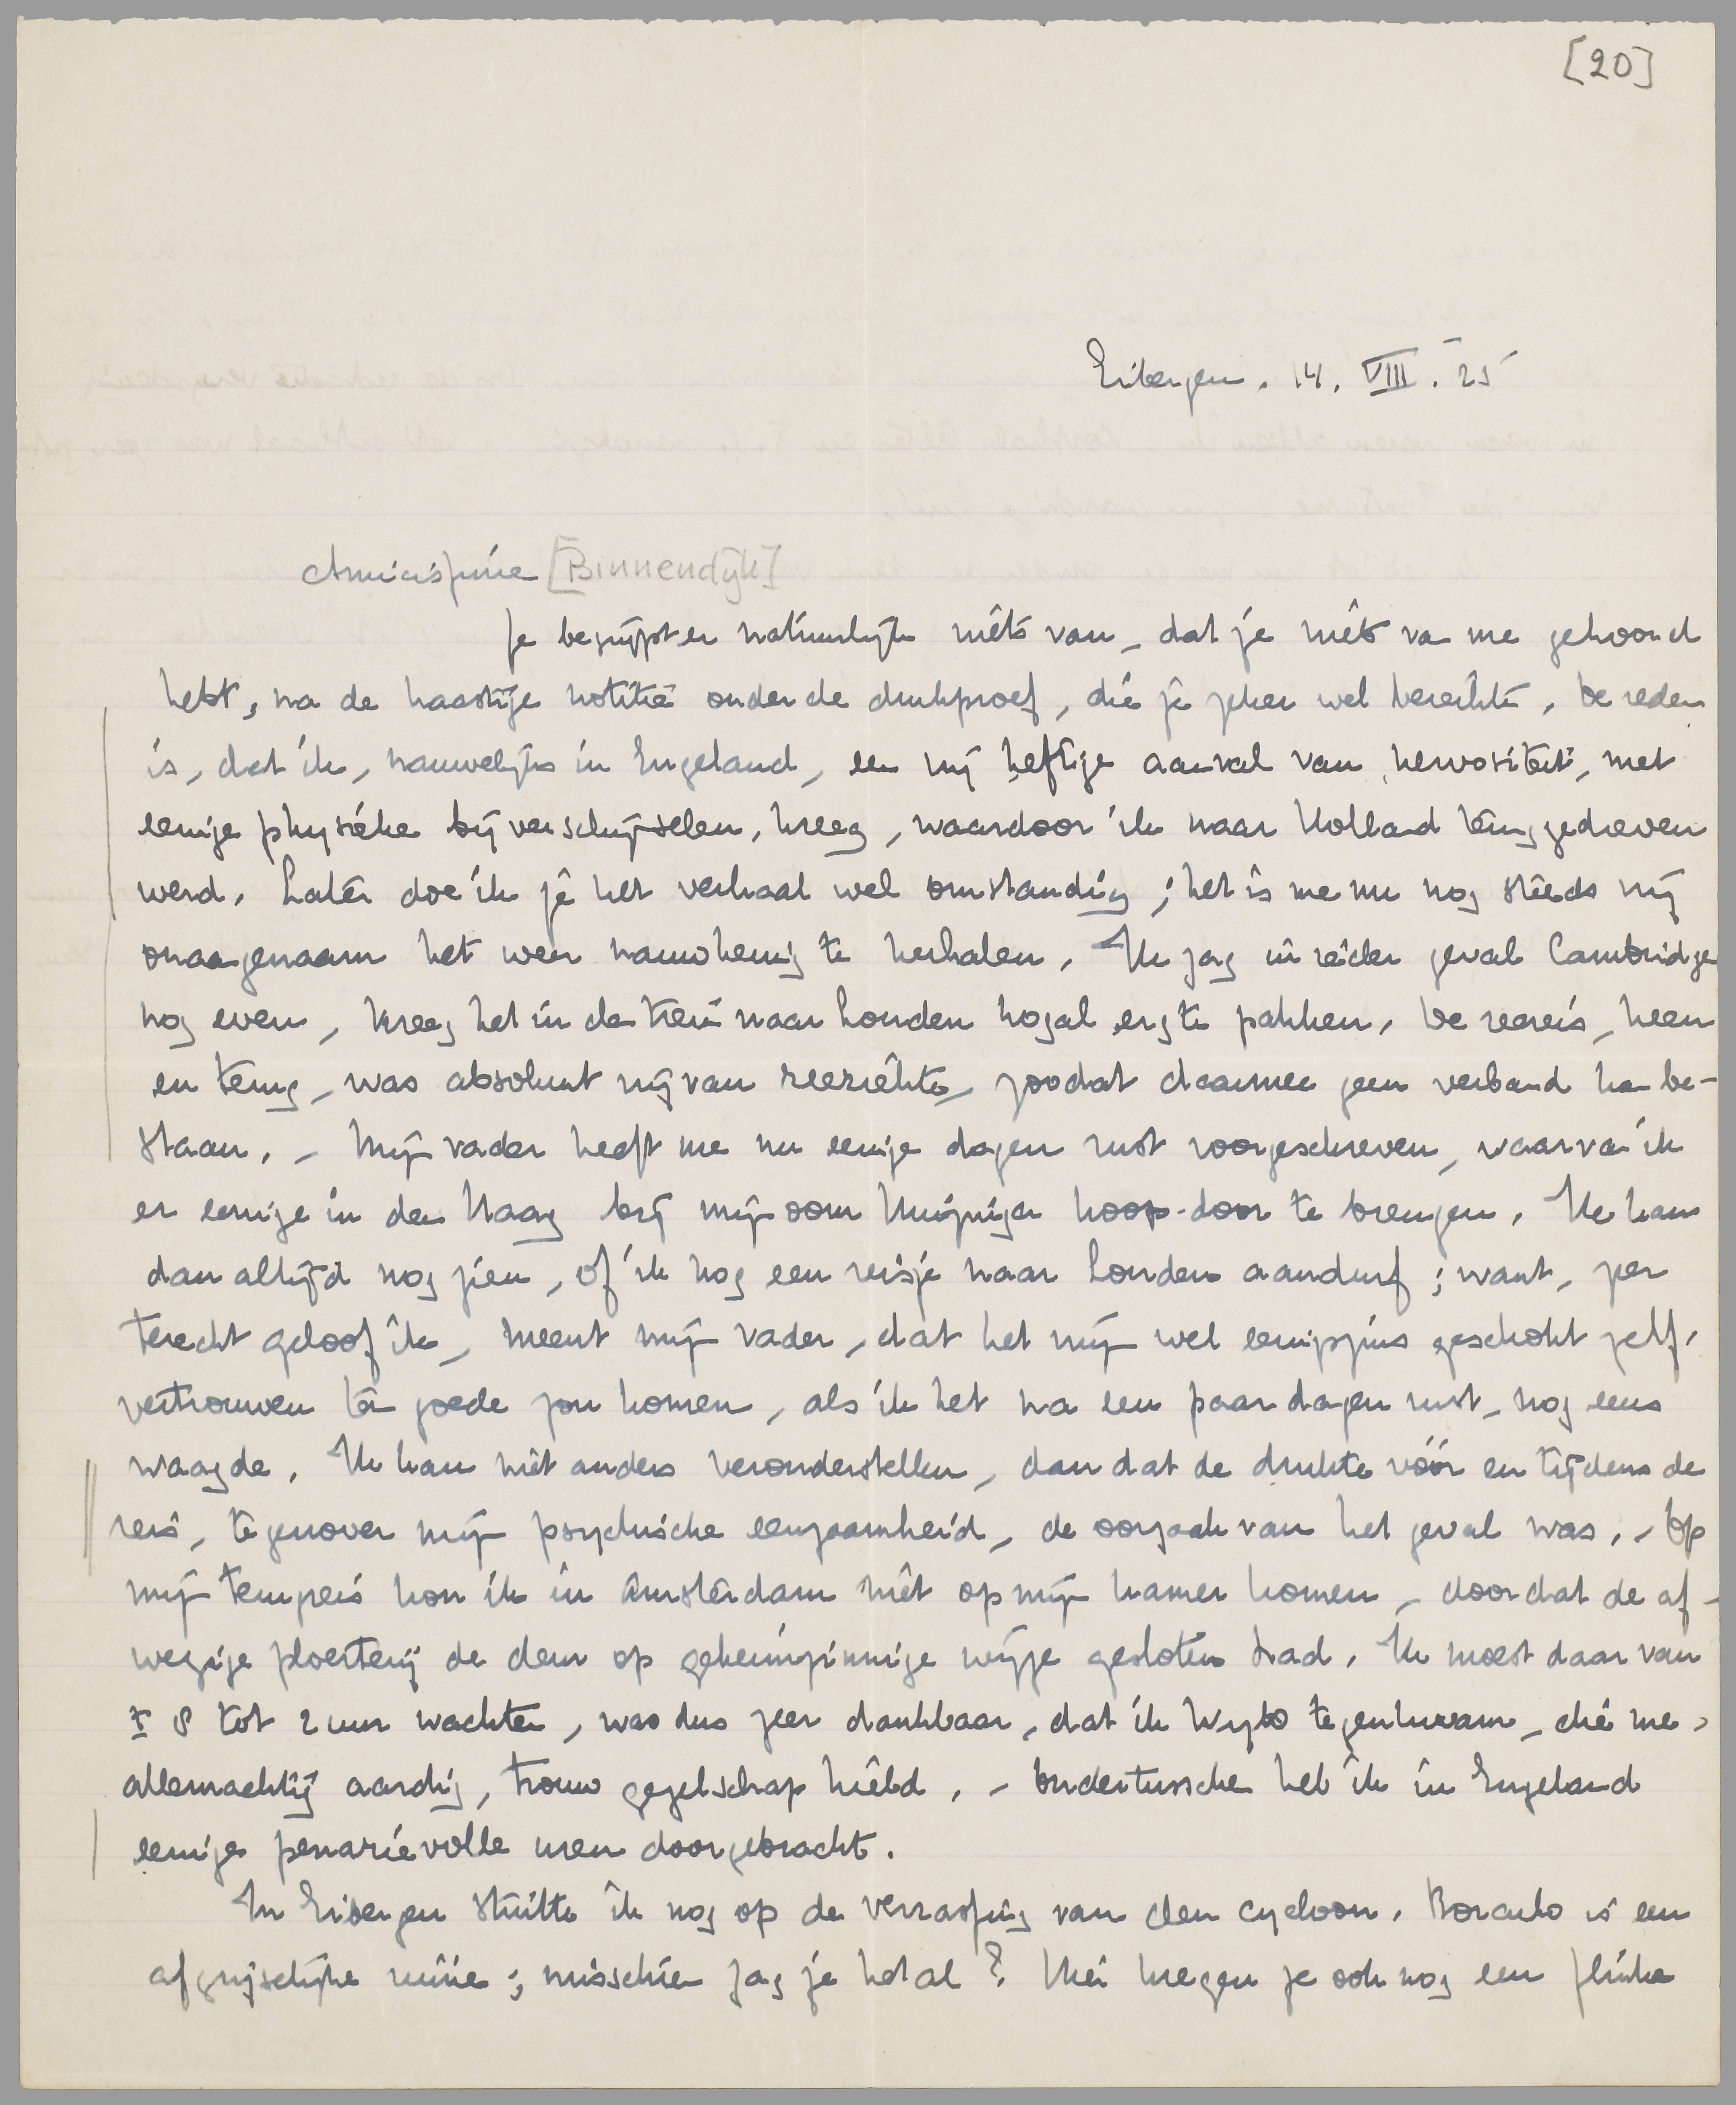 [20]
Eibergen. 14. VIII. 25
Amicissime [Binnendijk]
Je begrijpt er natuurlijk niets van, dat je niets van me gehoord
hebt, na de haastige notitie onder de drukproef, die je zeker wel bereikte. De reden
is, dat ik, nauwelijks in Engeland, een vrij heftige aanval van nervositeit, met
eenige physieke bijverschijnselen, kreeg, waardoor ik naar Holland teruggedreven
werd. Later doe ik je het verhaal wel omstandig; het is me nu nog steeds vrij
onaangenaam het weer nauwkeurig te herhalen. Ik zag in ieder geval Cambridge
nog even, kreeg het in de trein naar Londen nogal erg te pakken. De zeereis, heen
en terug, was absoluut vrij van zeeziekte, zoodat daarmee geen verband kan be-
staan. – Mijn vader heeft me nu eenige dagen rust voorgeschreven, waarvan ik
er eenige in den Haag bij mijn oom Huizinga hoop door te brengen. Ik kan
dan altijd nog zien, of ik nog een reisje naar Londen aandurf; want, zeer
terecht geloof ik, meent mijn vader, dat het mijn wel eenigszins geschokt zelf-
vertrouwen ten goede zou komen, als ik het na een paar dagen rust, nog eens
waagde. Ik kan niet anders veronderstellen, dan dat de drukte vóór en tijdens de
reis, tegenover mijn psychische eenzaamheid, de oorzaak van het geval was. – Op
mijn terugreis kon ik in Amsterdam niet op mijn kamer komen, doordat de af-
wezige ploerterij de deur op geheimzinnige wijze gesloten had. Ik moest daar van
± 8 tot 2 uur wachten, was dus zeer dankbaar, dat ik Wybo tegenkwam, die me,
allemachtig aardig, trouw gezelschap hield. – Ondertusschen heb ik in Engeland
eenige penarievolle uren doorgebracht.
In Eibergen stuitte ik nog op de verrassing van den cycloon. Borculo is een
afgrijselijke ruïne; misschien zag je het al? Hier kregen ze ook nog een flinke